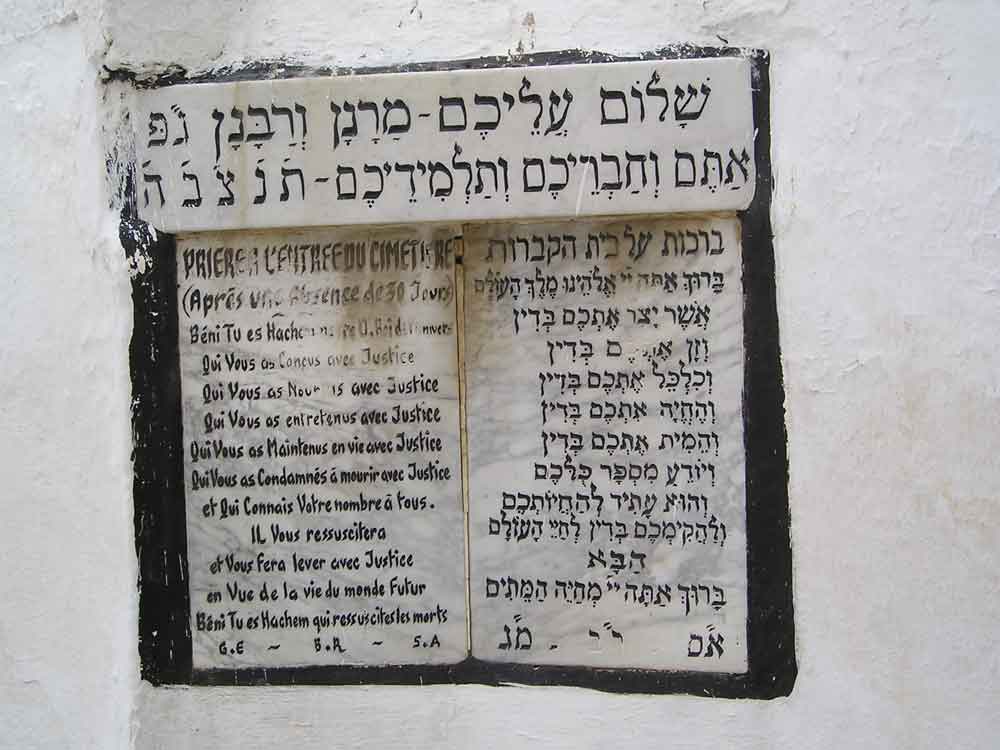 שָׁלוֹם עֲלֵיכֶם - מָרָנָן וְרַבָּנָן ג״פ
אַתֶּם וְחַבְרֵיכֶם וְתַלְמִידֵיכֶם - ת נ צ ב ה
PRIERE A L'ENTREE DU CIMETIERE
(Après une Absence de 30 Jours)
Béni Tu es Hachem
Qui Vous as Concus avec Justice
Qui Vous as avec Justice
Qui Vous as entretenus avec Justice
Qui Vous as Maintenus en vie avec Justice
Qui Vous as Condamnés à mourir avec Justice
et Qui Connais Votre nombre à tous.
IL Vous ressuscitera
et Vous Fera lever avec Justice
en Vue de la vie du monde Futur
Béni Tu es Hachem qui ressuscites les morts
G.E ~ B.R ~ S.A
ברכות על בית הקברות
בָּרוּךְ אַתָּה יי אֱלֹהֵינוּ מֶלֶךְ הָעוֹלָם
אֲשֶׁר יָצַר אֶתְכֶם בְּדִין
וְזָן בְּדִין
וְכִלְכֵּל אֶתְכֶם בְּדִין
וְהֶחֱיָה אֶתְכֶם בְּדִין
וְהֵמִית אֶתְכֶם בְּדִין
וְיוֹדֵעַ מִסְפַּר כֻּלְּכֶם
וְהוּא עָתִיד לְהַחֲיוֹתְכֶם
וְלַהֲקִימְכֶם בְּדִין לְחַיֵּי הָעוֹלָם
הַבָּא
בָּרוּךְ אַתָּה יי מְחַיֵּה הַמֵּתִים